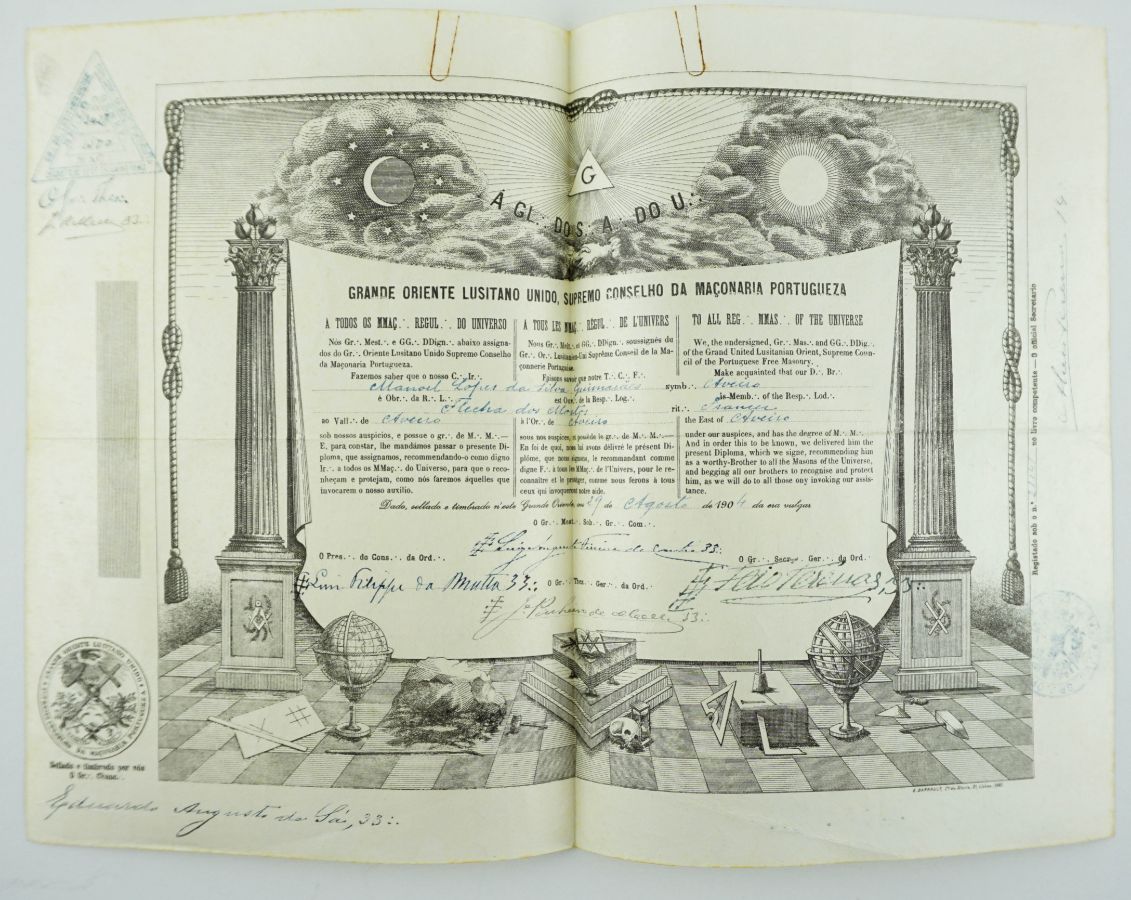 G
Á GL∴ DO S∴ A∴ DO U∴
GRANDE ORIENTE LUSITANO UNIDO, SUPREMO CONSELHO DA MAÇONARIA PORTUGUEZA
A TODOS OS MMAÇ∴ REGUL∴ DO UNIVERSO
Nós Gr∴ Mest∴ e GG∴ DDign∴ abaixo assigna-
dos do Gr∴ Oriente Lusitano Unido Supremo Conselho
da Maçonaria Portugueza.
Fazemos saber que o nosso C∴ Ir∴
Manoel Lopes da Silva Guimarães
é Obr∴ da R∴ L∴
Flecha dos Mortos
ao Vall∴ de Aveiro
sob nossos auspicios, e possue o gr∴ de M∴ M∴—
E, para constar, lhe mandámos passar o presente Di-
ploma, que assignamos, recommendando-o como digno
Ir∴ a todos os MMaç∴ do Universo, para que o reco-
nheçam e protejam, como nós faremos áquelles que
invocarem o nosso auxilio.
A TOUS LES MMAÇ∴ RÉGUL∴ DE L'UNIVERS
Nous Gr∴ Mait∴ et GG∴ DDign∴ soussignés du
Gr∴ Or∴ Lusitanien-Uni Suprême Conseil de la Ma-
çonnerie Portugaise.
Faisons savoir que notre T∴ C∴ F∴
est Ouv∴ de la Resp∴ Log∴
à l'Or∴ de Aveiro
sous nos auspices, et possède le gr∴ de M∴ M∴
En foi de quoi, nous lui avons délivré le présent Di-
plôme, que nous signons, le recommandant comme
digne F∴ à tous les MMaç∴ de l'Univers, pour le re-
connaître et le protéger, comme nous ferons à tous
ceux qui invoqueront notre aide.
TO ALL REG∴ MMAS∴ OF THE UNIVERSE
We, the undersigned, Gr∴ Mas∴ and GG∴ DDig∴
of the Grand United Lusitanian Orient, Supreme Coun-
cil of the Portuguese Free Masonry.
Make acquainted that our D∴ Br∴
symb∴ Aveiro
is Memb∴ of the Resp∴ Lod∴
rit∴ Francez
the East of Aveiro
under our auspices, and has the degree of M∴ M∴
And in order this to be known, we delivered him the
present Diploma, which we signe, recommending him
as a worthy-Brother to all the Masons of the Universe,
and begging all our brothers to recognise and protect
him, as we will do to all those ony invoking our assis-
tance.
Dado, sellado e timbrado n'este Grande Oriente, aos 29 de Agosto de 1904 da era vulgar
O Gr∴ Mest∴ Sob∴ Gr∴ Com∴
Luiz Augusto Ferreira de Castro 33∴
O Pres∴ do Cons∴ da Ord∴
Luis Filippe da Matta 33∴
O Gr∴ Secr∴ Ger∴ da Ord∴
Heio Terenas, 33∴
O Gr∴ Thes∴ Ger∴ da Ord∴
33∴
O Gr∴ Thes∴
33∴
Sellado e timbrado por nós
O Gr∴ Chanc∴
Eduardo Augusto de Sá, 33∴
Registado sob o n.º
no livro competente — O official Secretario